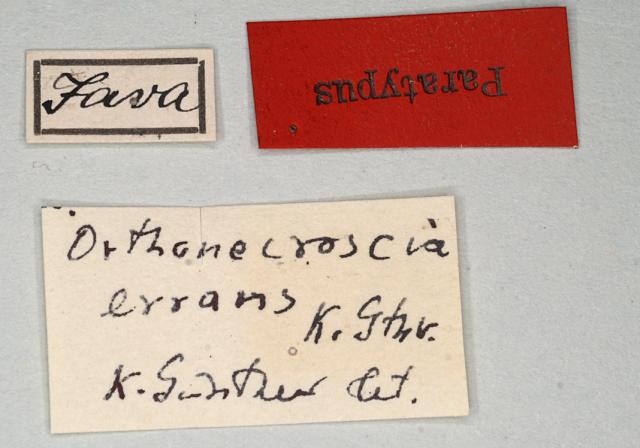 Java
Paratypus
Orthonecroscia
errans
K. Gthr.
K. Günther det.